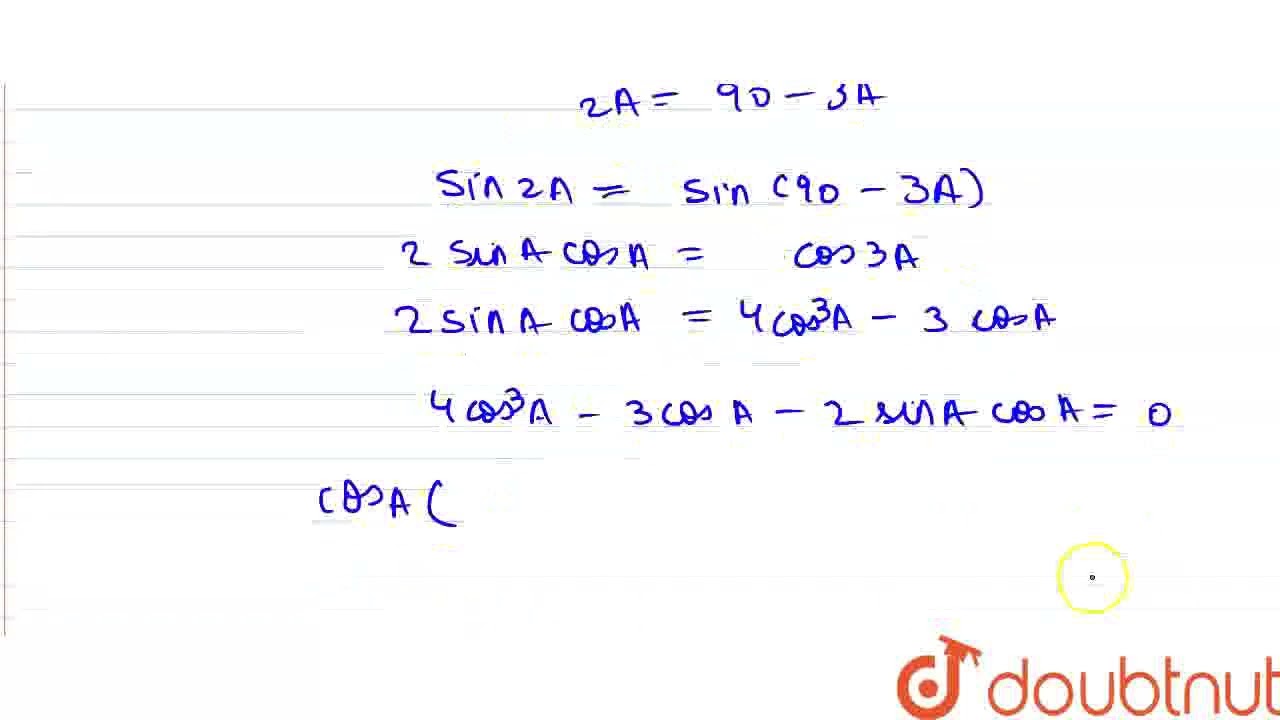 2A = 90 - 3A
sin 2A = sin (90 - 3A)
2 sin A cos A = cos 3A
2 sin A cos A = 4 cos³A - 3 cos A
4 cos³A - 3 cos A - 2 sin A cos A = 0
cos A (
doubtnut